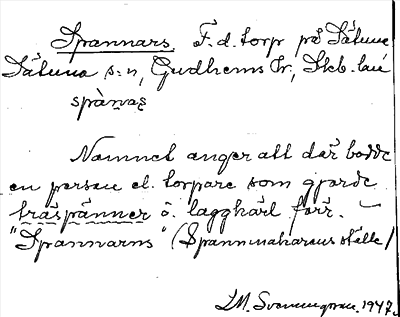 Spannars. F.d. torp på Sätuna
Sätuna s:n, Gudhems hr, Skb. län
spànas̱
Namnet anger att där bodde
en person el. torpare som gjorde
träspänner o. laggkärl förr.
"Spannarns" (Spannmakarens ställe)
LM. Svenungsson. 1947.